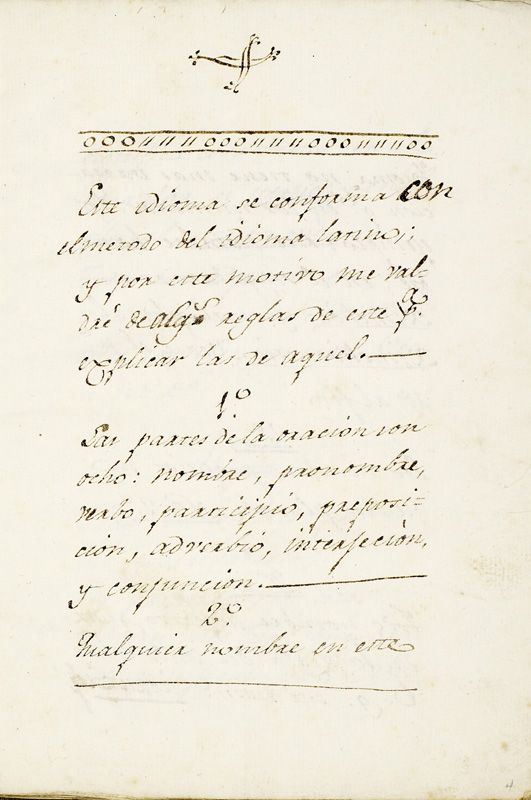 Este idioma se conforma con
el metodo del idioma latino;
y por este motivo me val-
dré de algs reglas de este pa.
explicar las de aquel.
1.º
Las partes de la oración son
ocho: nombre, pronombre,
verbo, participio, preposi-
ción, adverbio, interjeción,
y conjunción.
2.º
Qualquier nombre en este
4